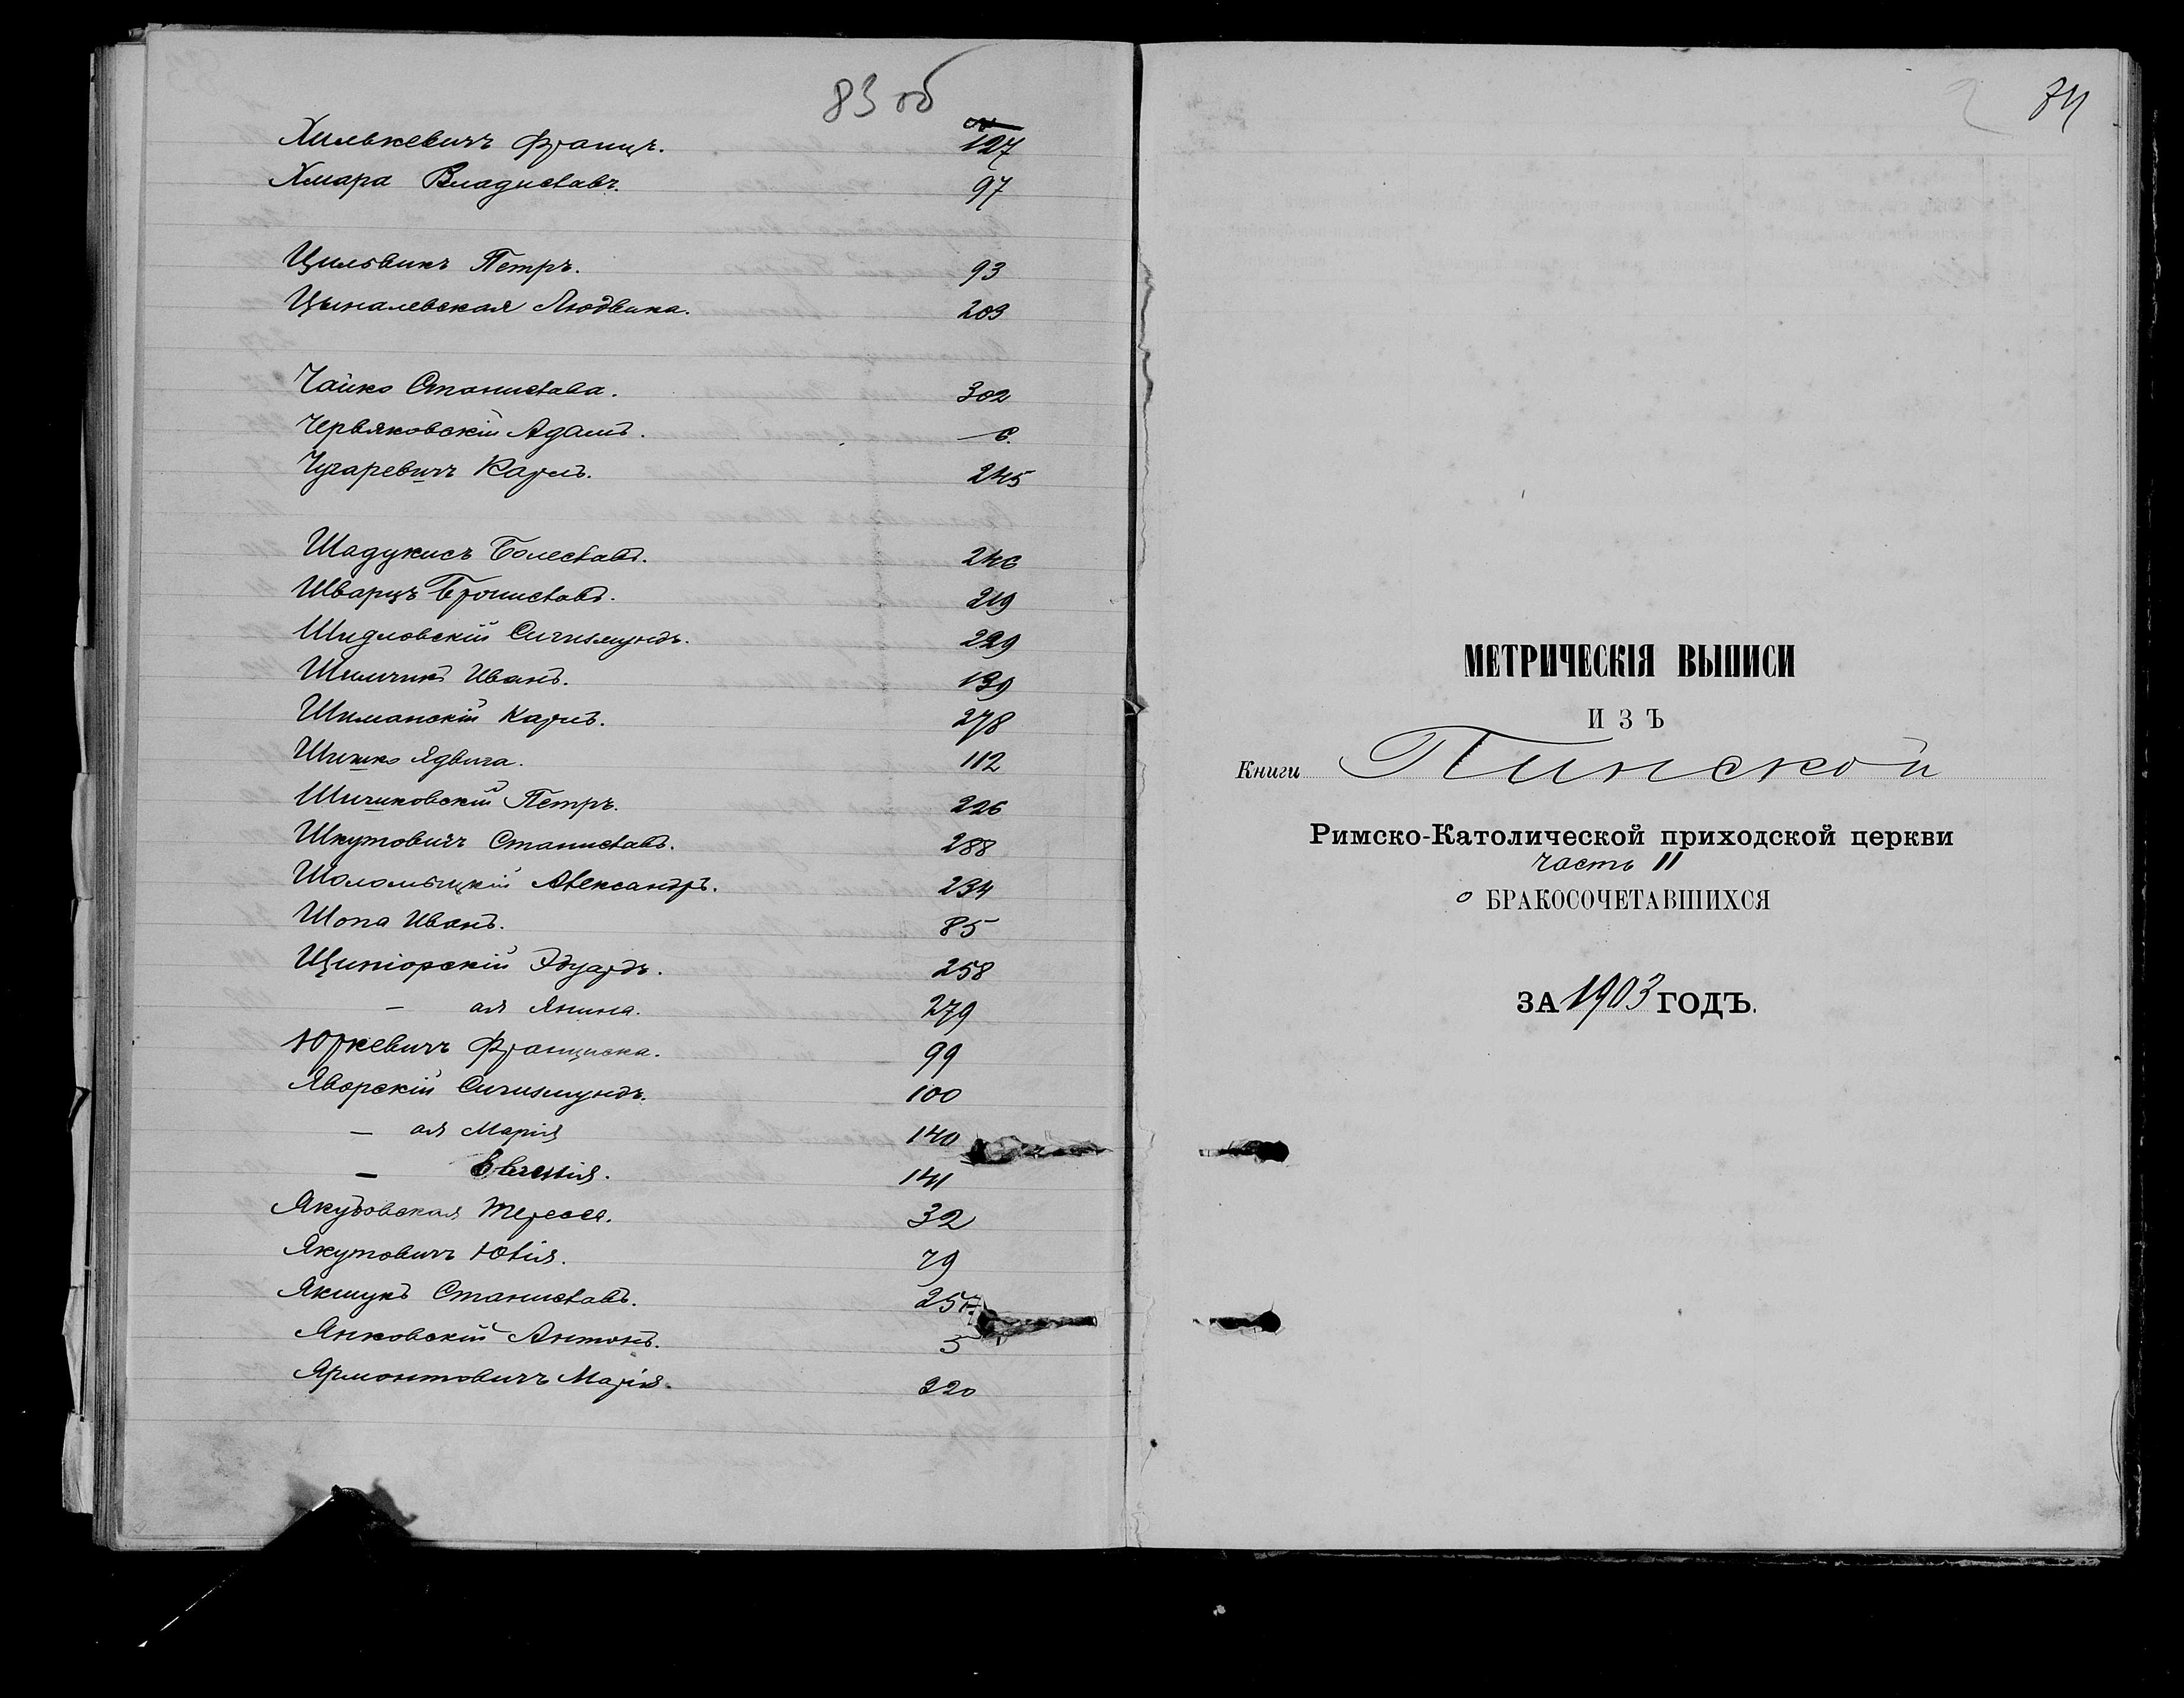 83 об
№
Хилькевичъ Францъ. 127
Хмара Владиславъ. 97
Цильвикъ Петръ. 93
Цыналевская Людвика. 203
Чайко Станислава. 302
Червяковскій Адамъ. 6.
Чугаревичъ Карлъ. 245
Шадукисъ Болеславъ. 246
Шварцъ Брониславъ. 219
Шидловскій Сигизмундъ. 229
Шиличикъ Иванъ. 139
Шиманскій Карлъ. 278
Шишко Ядвига. 112
Шишковскій Петръ. 226
Шкутовичъ Станиславъ. 288
Шоломыцкій Александръ. 234
Шопа Иванъ. 85
Щипіорскій Эдуардъ. 258
— ая Янина. 279
Юркевичъ Франциска. 99
Яворскій Сигизмундъ. 100
— ая Марія 140
— 141
Якубовская Тереса. 32
Якутовичъ Юлія. 79
Якшукъ Станиславъ. 257
Янковскій Антонъ. 5
Ярмонтовичъ Марія. 220
84
МЕТРИЧЕСКІЯ ВЫПИСИ
ИЗЪ
Книги Пинской
Римско-Католической приходской церкви
часть II
о БРАКОСОЧЕТАВШИХСЯ
ЗА 1903 ГОДЪ.